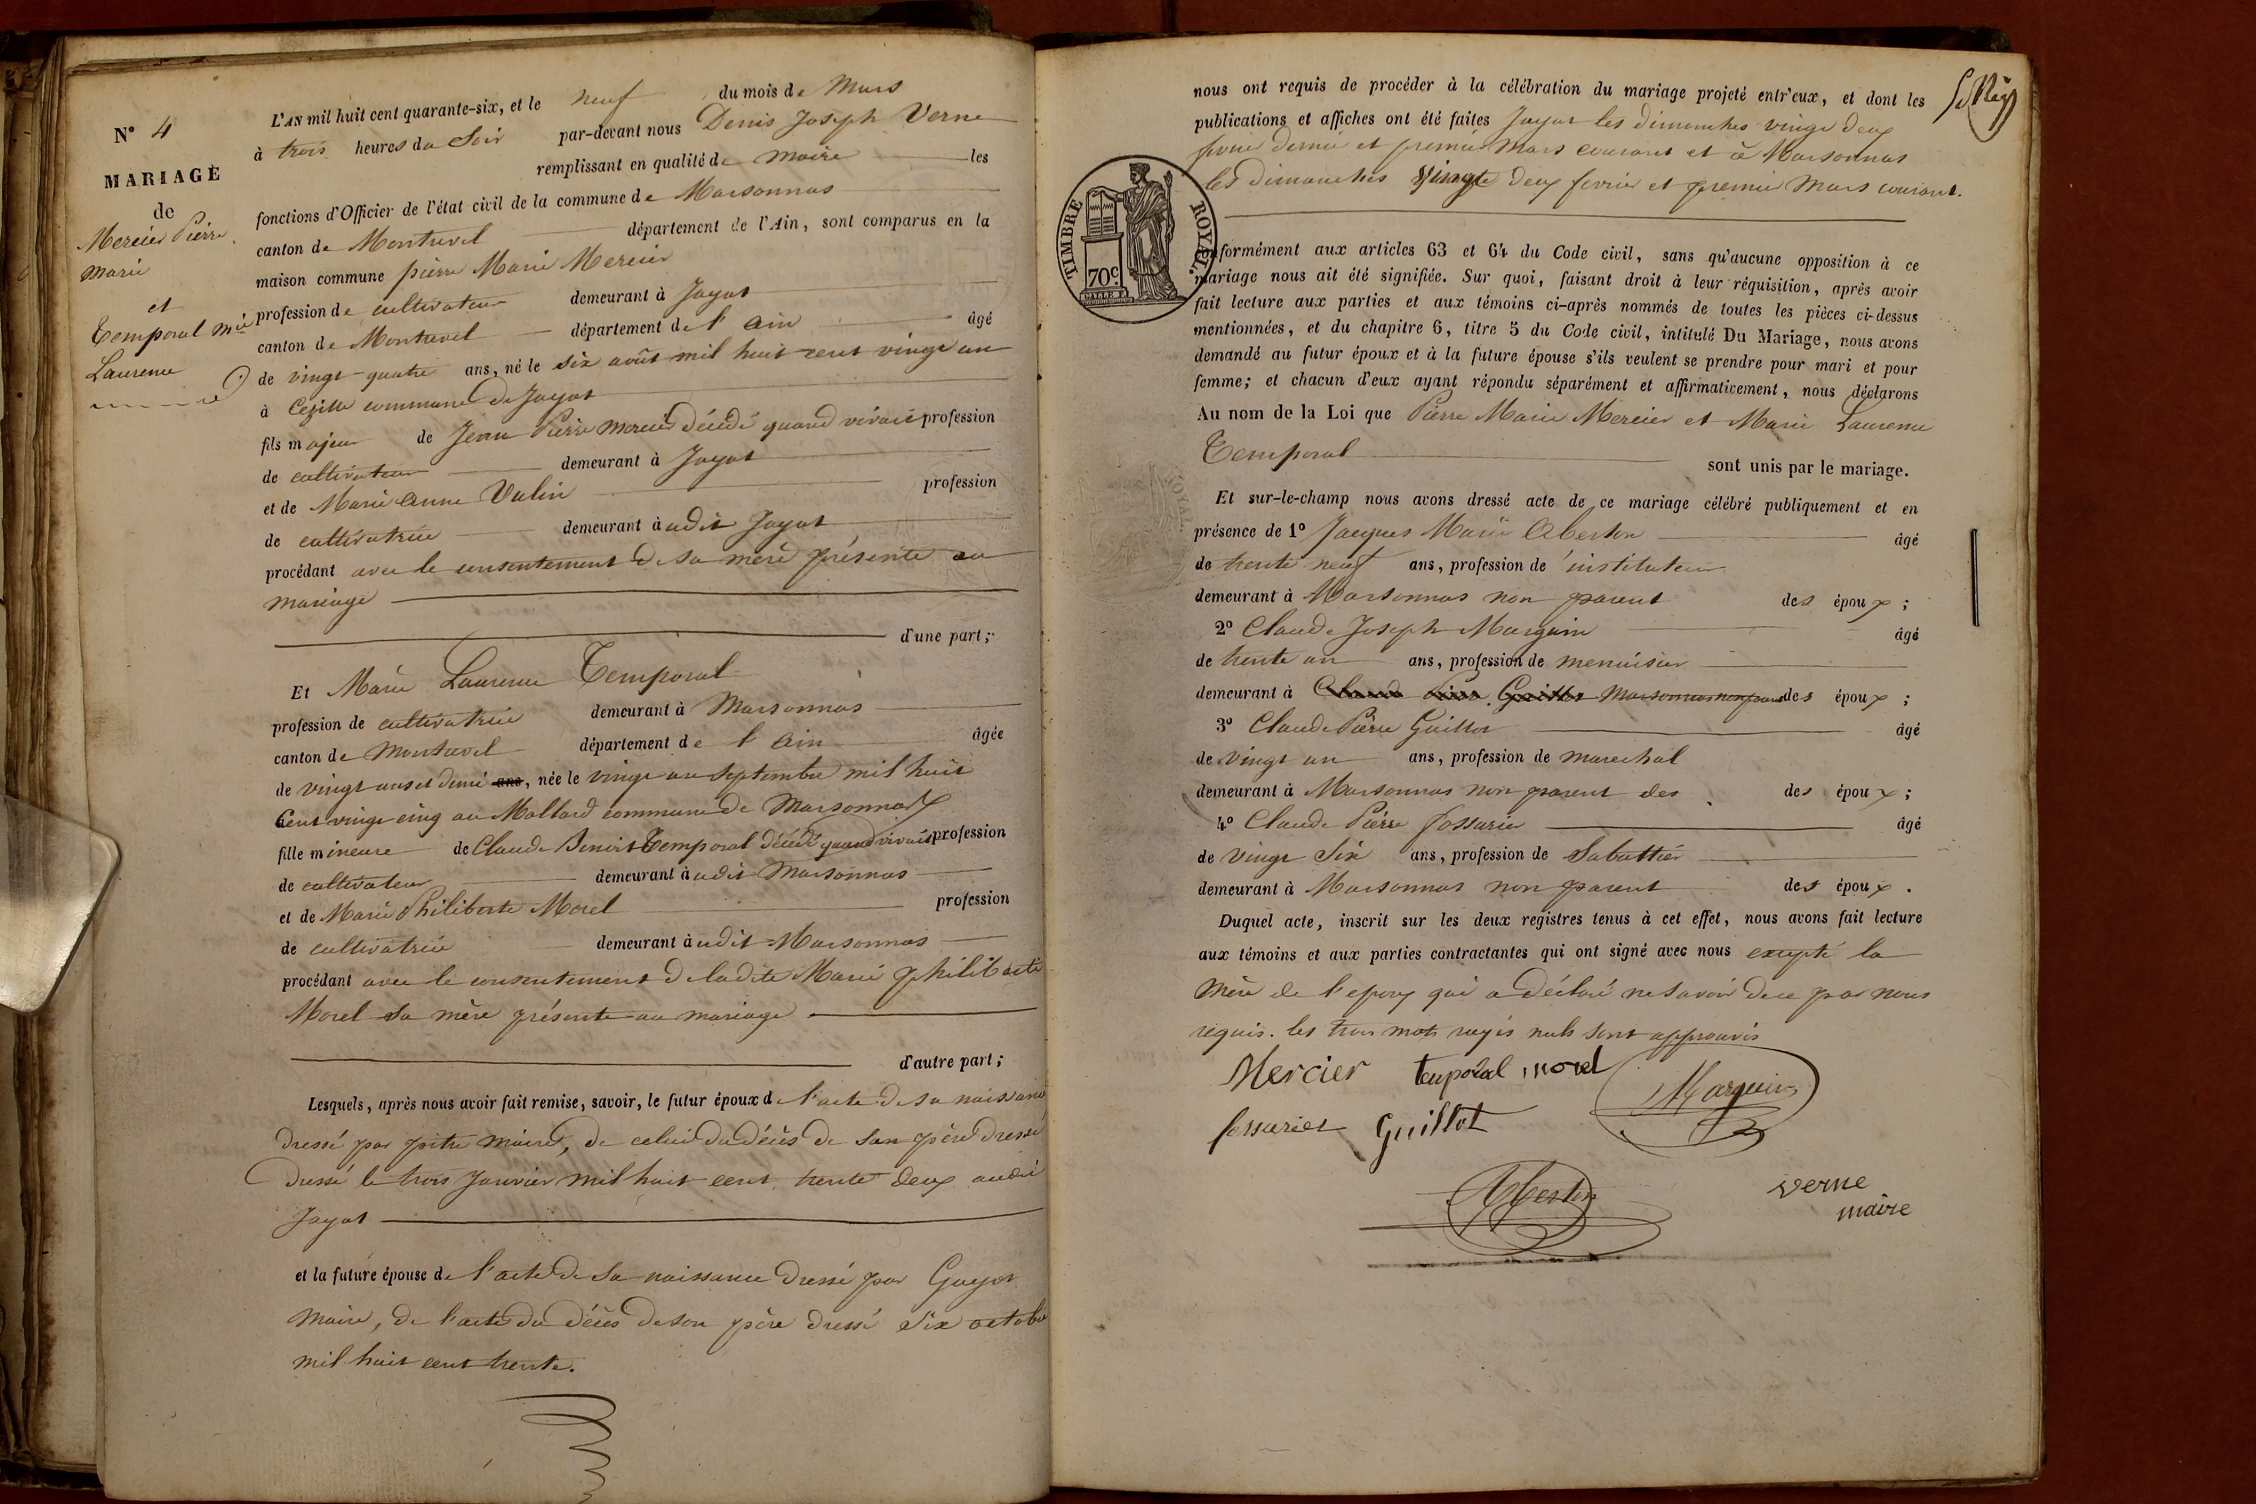 N° 4
MARIAGE
de
Mercier Pierre
Marie
et
Temporal Mie
Laurence
L'AN mil huit cent quarante-six, et le neuf du mois de Mars
à trois heures du Soir par-devant nous Denis Joseph Verne
remplissant en qualité de maire les
fonctions d'Officier de l'état civil de la commune de Marsonnas
canton de Montrevel département de l'Ain, sont comparus en la
maison commune pierre Marie Mercier
profession de cultivateur demeurant à Jayat
canton de Montrevel département de l' Ain âgé
de vingt quatre ans, né le six août mil huit cent vingt un
à Cezille commune de Jayat
fils majeur de Jean Pierre Mercier décédé quand vivait profession
de cultivateur demeurant à Jayat
et de Marie Anne Valin profession
de cultivatrice demeurant à udit Jayat
procédant avec le consentement de sa mère présente au
mariage
d'une part;
Et Marie Laurence Temporal
profession de cultivatrice demeurant à Marsonnas
canton de Montrevel département de l' Ain âgée
de vingt ans et demi ans, née le vingt un septembre mil huit
Cent vingt cinq au Mollard commune de Marsonnas
fille mineure de Claude Benoit Temporal décédé quand vivait profession
de cultivateur demeurant à udit Marsonnas
et de Marie Philiberte Morel profession
de cultivatrice demeurant à udit Marsonnas
procédant avec le consentement de ladite Marie philiberte
Morel sa mère présente au mariage
d'autre part;
Lesquels, après nous avoir fait remise, savoir, le futur époux de l'acte de sa naissance
dressé par pitre maire, de celui du décès de son père dressé
dressé le trois Janvier mil huit cent trente deux audit
Jayat
et la future épouse de l'acte de sa naissance dressé par Guyot
maire, de l'acte du décès de son père dressé six octobre
mil huit cent trente.
nous ont requis de procéder à la célébration du mariage projeté entr'eux, et dont les
publications et affiches ont été faites Jayat les dimanches vingt deux
fevrier dernier et premier Mars courant et à Marsonnas
les dimanches vingt deux fevrier et premier Mars courant.
TIMBRE ROYAL.
70 c.
formément aux articles 63 et 64 du Code civil, sans qu'aucune opposition à ce
mariage nous ait été signifiée. Sur quoi, faisant droit à leur réquisition, après avoir
fait lecture aux parties et aux témoins ci-après nommés de toutes les pièces ci-dessus
mentionnées, et du chapitre 6, titre 5 du Code civil, intitulé Du Mariage, nous avons
demandé au futur époux et à la future épouse s'ils veulent se prendre pour mari et pour
femme; et chacun d'eux ayant répondu séparément et affirmativement, nous déclarons
Au nom de la Loi que Pierre Marie Mercier et Marie Laurence
Temporal sont unis par le mariage.
Et sur-le-champ nous avons dressé acte de ce mariage célébré publiquement et en
présence de 1° Jacques Marie Aberton âgé
de trente neuf ans, profession de instituteur
demeurant à Marsonnas non parent des époux;
2° Claude Joseph Marguin âgé
de trente un ans, profession de menuisier
demeurant à Claude Pierre Guillot Marsonnas non parent des époux;
3° Claude Pierre Guillot âgé
de vingt un ans, profession de marechal
demeurant à Marsonnas non parent des des époux;
4° Claude Pierre fossurier âgé
de vingt six ans, profession de Sabottier
demeurant à Marsonnas non parent des époux.
Duquel acte, inscrit sur les deux registres tenus à cet effet, nous avons fait lecture
aux témoins et aux parties contractantes qui ont signé avec nous excepté la
Mère de l'epoux qui a déclaré ne savoir de ce par nous
requis. les trois mots rayés nuls sont approuvés
Mercier temporal morel Marguin
fossurier Guillot
Aberton
verne
maire